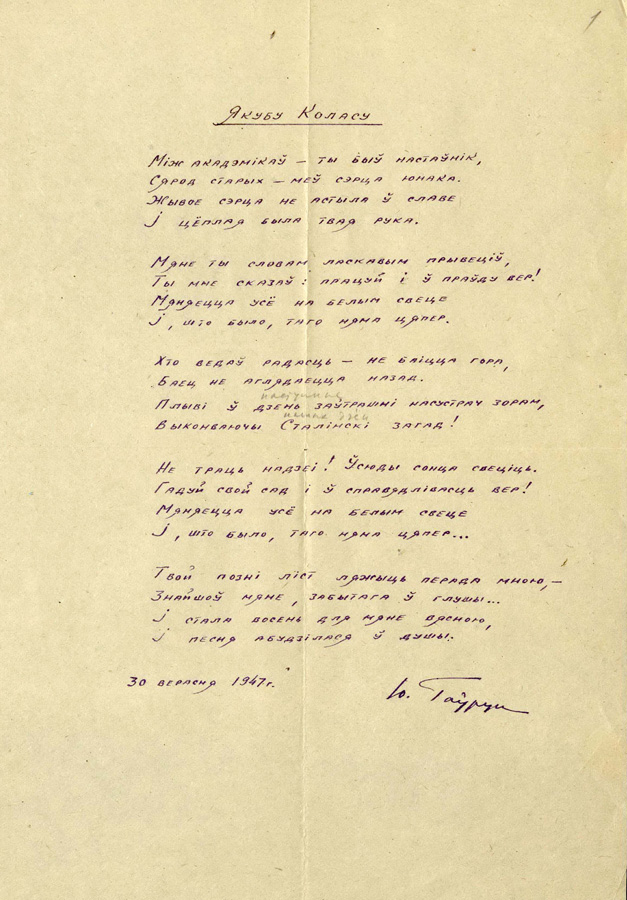 1
Якубу Коласу
Між акадэмікаў – ты быў настаўнік,
Сярод старых – меў сэрца юнака.
Жывое сэрца не астыла ў славе
І цёплая была твая рука.
Мяне ты словам ласкавым прывеціў,
Ты мне сказаў: працуй і ў праўду вер!
Мяняецца усё на белым свеце
І, што было, таго няма цяпер.
Хто ведаў радасць – не баіцца гора,
Баец не аглядаецца назад.
Плыві ў дзень заўтрашні насустрач зорам,
Выконваючы Сталінскі загад!
Не траць надзеі! Ўсюды сонца свеціць.
Гадуй свой сад і ў справядлівасць вер!
Мяняецца усё на белым свеце
І, што было, таго няма цяпер...
Твой позні ліст ляжыць перада мною, –
Знайшоў мяне, забытага ў глушы...
І стала восень для мяне вясною,
І песня абудзілася ў душы.
30 верасня 1947 г.
Ю. Гаўрук